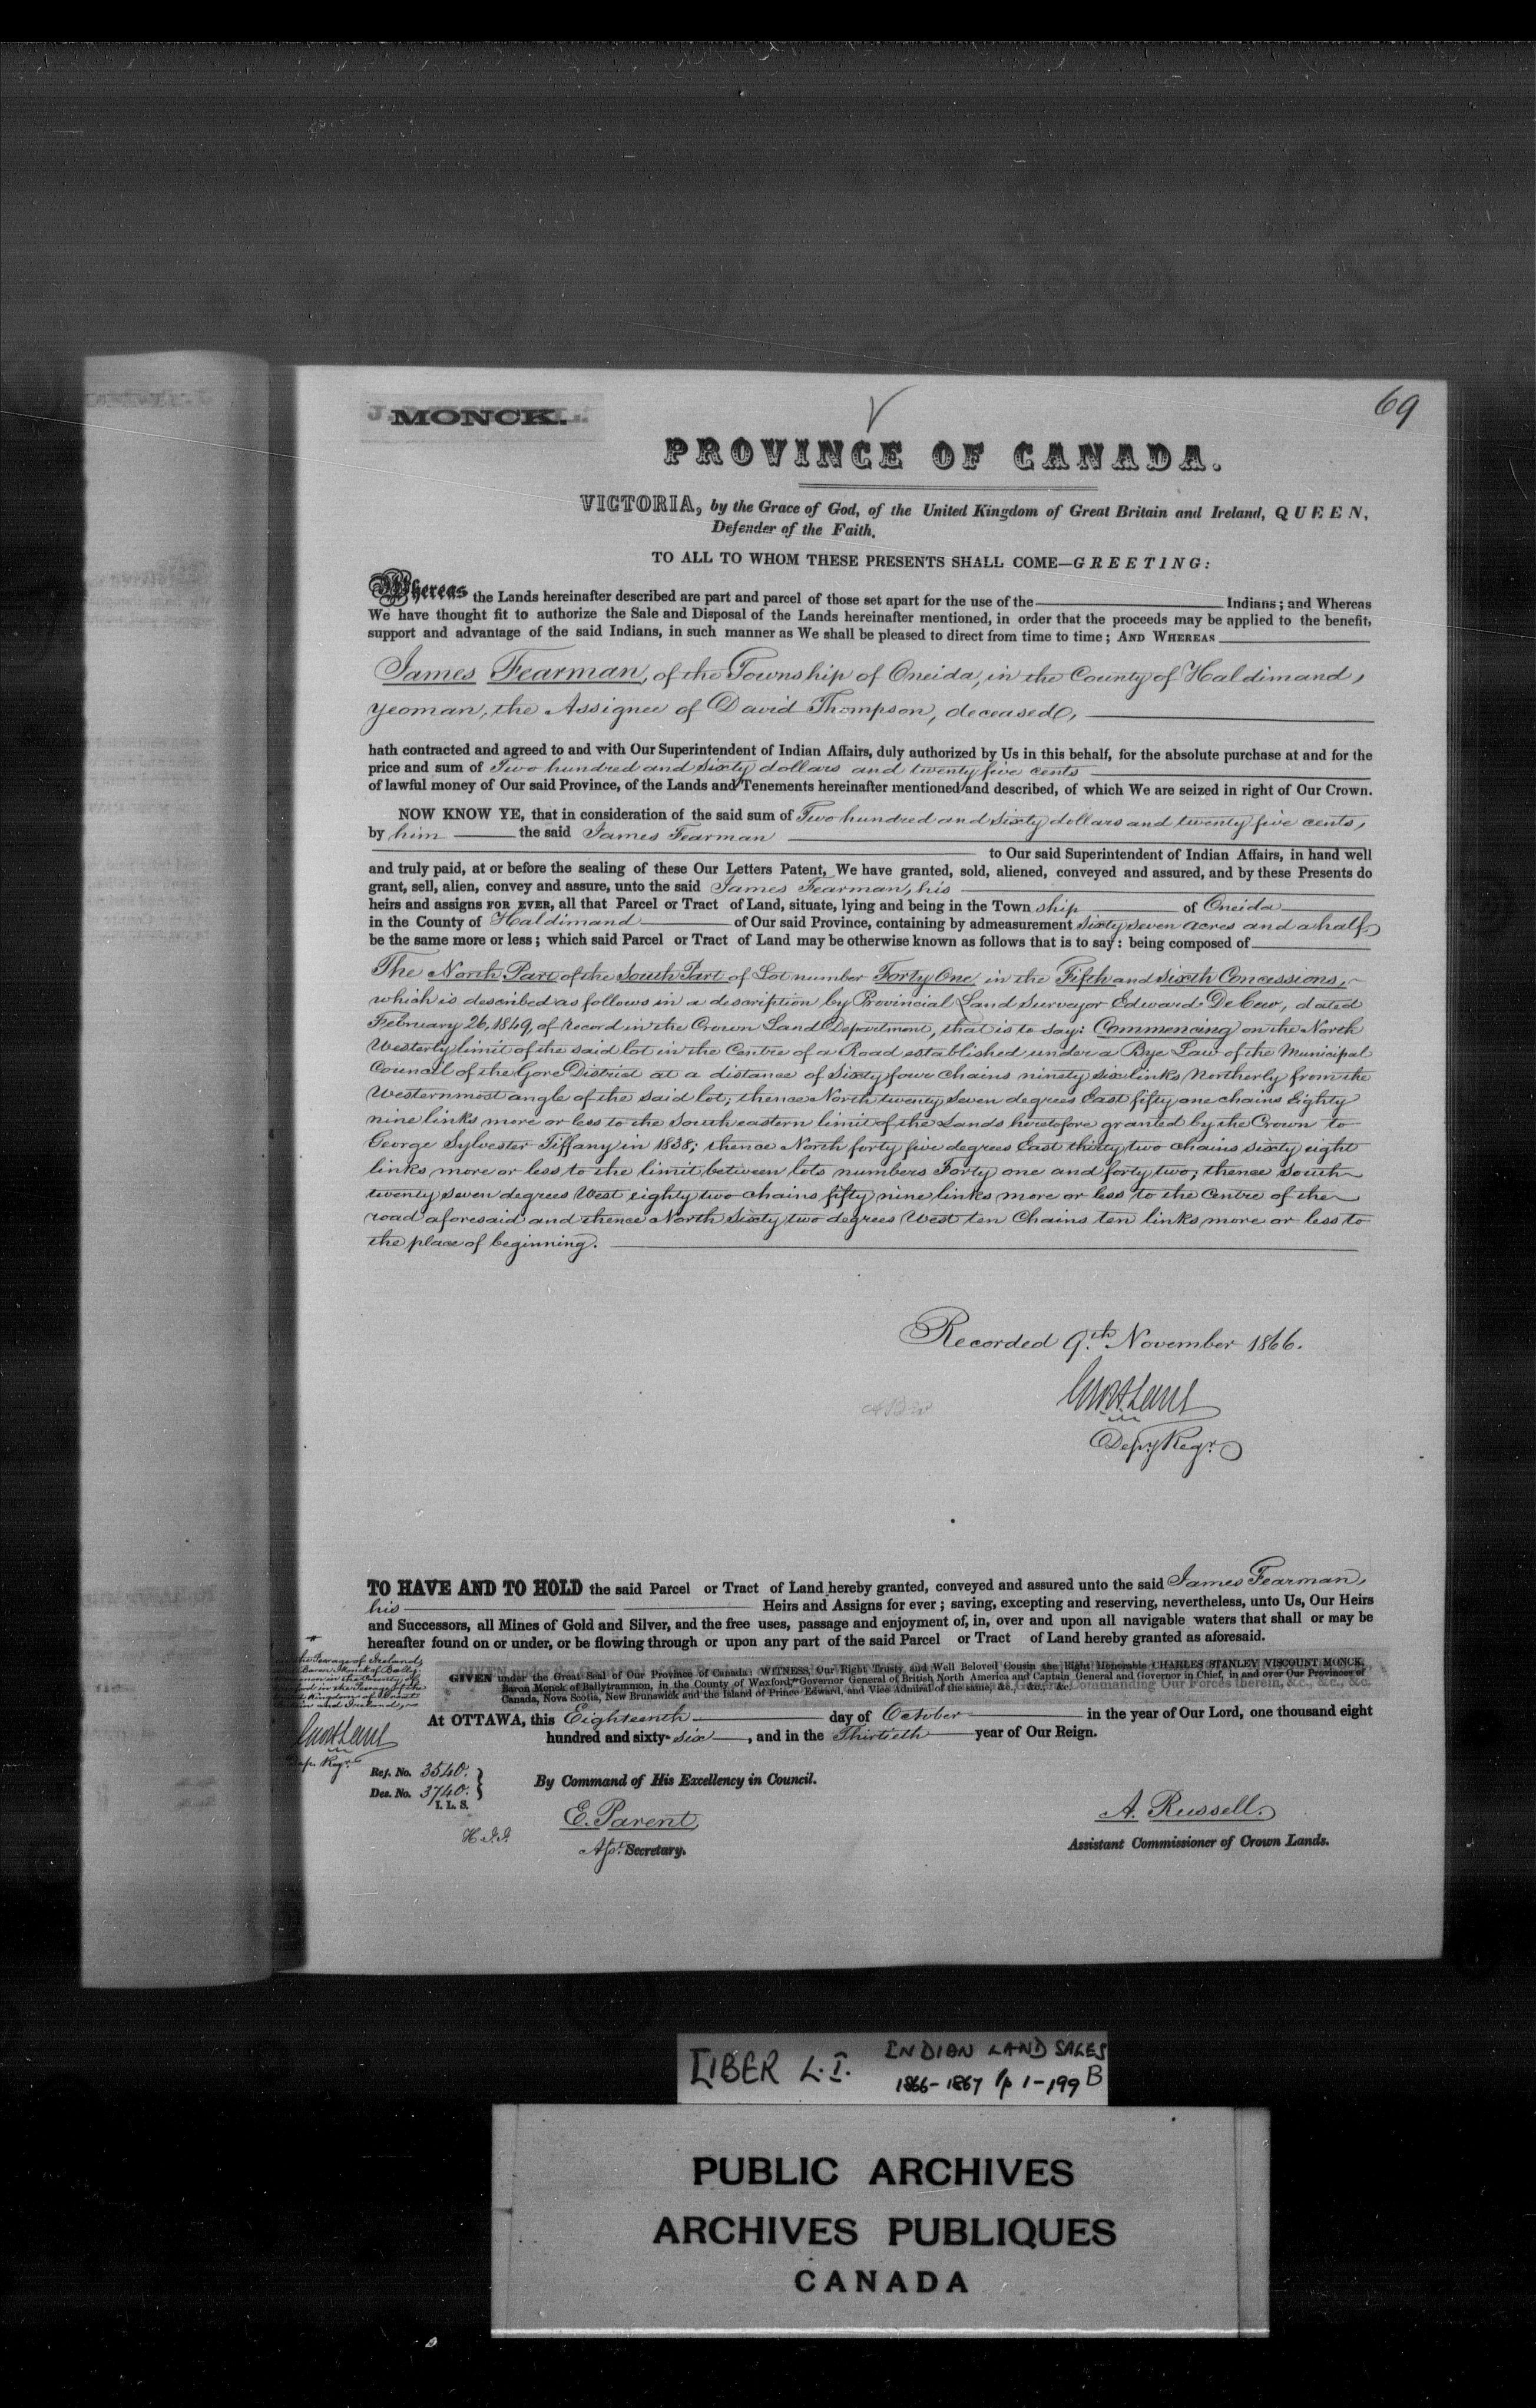 69
MONCK.
PROVINCE OF CANADA.
VICTORIA, by the Grace of God, of the United Kingdom of Great Britain and Ireland, QUEEN,
Defender of the Faith.
TO ALL TO WHOM THESE PRESENTS SHALL COME—GREETING:
Whereas the Lands hereinafter described are part and parcel of those set apart for the use of the Indians; and Whereas
We have thought fit to authorize the Sale and Disposal of the Lands hereinafter mentioned, in order that the proceeds may be applied to the benefit,
support and advantage of the said Indians, in such manner as We shall be pleased to direct from time to time; AND WHEREAS
James Fearman, of the Township of Oneida, in the County of Haldimand,
yeoman, the Assignee of David Thompson, deceased,
hath contracted and agreed to and with Our Superintendent of Indian Affairs, duly authorized by Us in this behalf, for the absolute purchase at and for the
price and sum of Two hundred and sixty dollars and twenty five cents
of lawful money of Our said Province, of the Lands and Tenements hereinafter mentioned and described, of which We are seized in right of Our Crown.
NOW KNOW YE, that in consideration of the said sum of Two hundred and sixty dollars and twenty five cents,
by him the said James Fearman
to Our said Superintendent of Indian Affairs, in hand well
and truly paid, at or before the sealing of these Our Letters Patent, We have granted, sold, aliened, conveyed and assured, and by these Presents do
grant, sell, alien, convey and assure, unto the said James Fearman, his
heirs and assigns FOR EVER, all that Parcel or Tract of Land, situate, lying and being in the Town ship of Oneida
in the County of Haldimand of Our said Province, containing by admeasurement sixty seven acres and a half
be the same more or less; which said Parcel or Tract of Land may be otherwise known as follows that is to say: being composed of
The North Part of the South Part of Lot number Forty One, in the Fifth and Sixth Concessions,
which is described as follows in a description by Provincial Land Surveyor Edward DeCew, dated
February 26, 1849, of record in the Crown Land Department, that is to say: Commencing on the North
Westerly limit of the said lot in the Centre of a Road established under a Bye Law of the Municipal
Council of the Gore District at a distance of Sixty four chains ninety six links Northerly from the
Westernmost angle of the said lot; thence North twenty seven degrees East fifty one chains Eighty
nine links more or less to the South eastern limit of the Lands heretofore granted by the Crown to
George Sylvester Tiffany in 1838; thence North forty five degrees East thirty two chains sixty eight
links more or less to the limit between lots numbers Forty one and forty two; thence South
twenty seven degrees West eighty two chains fifty nine links more or less to the Centre of the
road aforesaid and thence North sixty two degrees West ten Chains ten links more or less to
the place of beginning.
Recorded 9th November 1866.
Depy Regr
TO HAVE AND TO HOLD the said Parcel or Tract of Land hereby granted, conveyed and assured unto the said James Fearman,
his Heirs and Assigns for ever; saving, excepting and reserving, nevertheless, unto Us, Our Heirs
and Successors, all Mines of Gold and Silver, and the free uses, passage and enjoyment of, in, over and upon all navigable waters that shall or may be
hereafter found on or under, or be flowing through or upon any part of the said Parcel or Tract of Land hereby granted as aforesaid.
the Peerage of Ireland,
Baron Monck of Bally
in the County of
in the Peerage of the
Kingdom of Great
and Ireland,
Dep. Regr
GIVEN under the Great Seal of Our Province of Canada: WITNESS, Our Right Trusty and Well Beloved Cousin the Right Honorable CHARLES STANLEY VISCOUNT MONCK,
Baron Monck of Ballytrammon, in the County of Wexford, Governor General of British North America and Captain General and Governor in Chief, in and over Our Provinces of
Canada, Nova Scotia, New Brunswick and the Island of Prince Edward, and Vice Admiral of the same, &c., &c., &c. Commanding Our Forces therein, &c., &c., &c.
At OTTAWA, this Eighteenth day of October in the year of Our Lord, one thousand eight
hundred and sixty-six, and in the Thirtieth year of Our Reign.
Ref. No. 3540.
Des. No. 3740.
I. L. S.
By Command of His Excellency in Council.
E. Parent,
Asst. Secretary.
A. Russell.
Assistant Commissioner of Crown Lands.
LIBER L.I. INDIAN LAND SALES
1866-1867 pp 1-199 B
PUBLIC ARCHIVES
ARCHIVES PUBLIQUES
CANADA